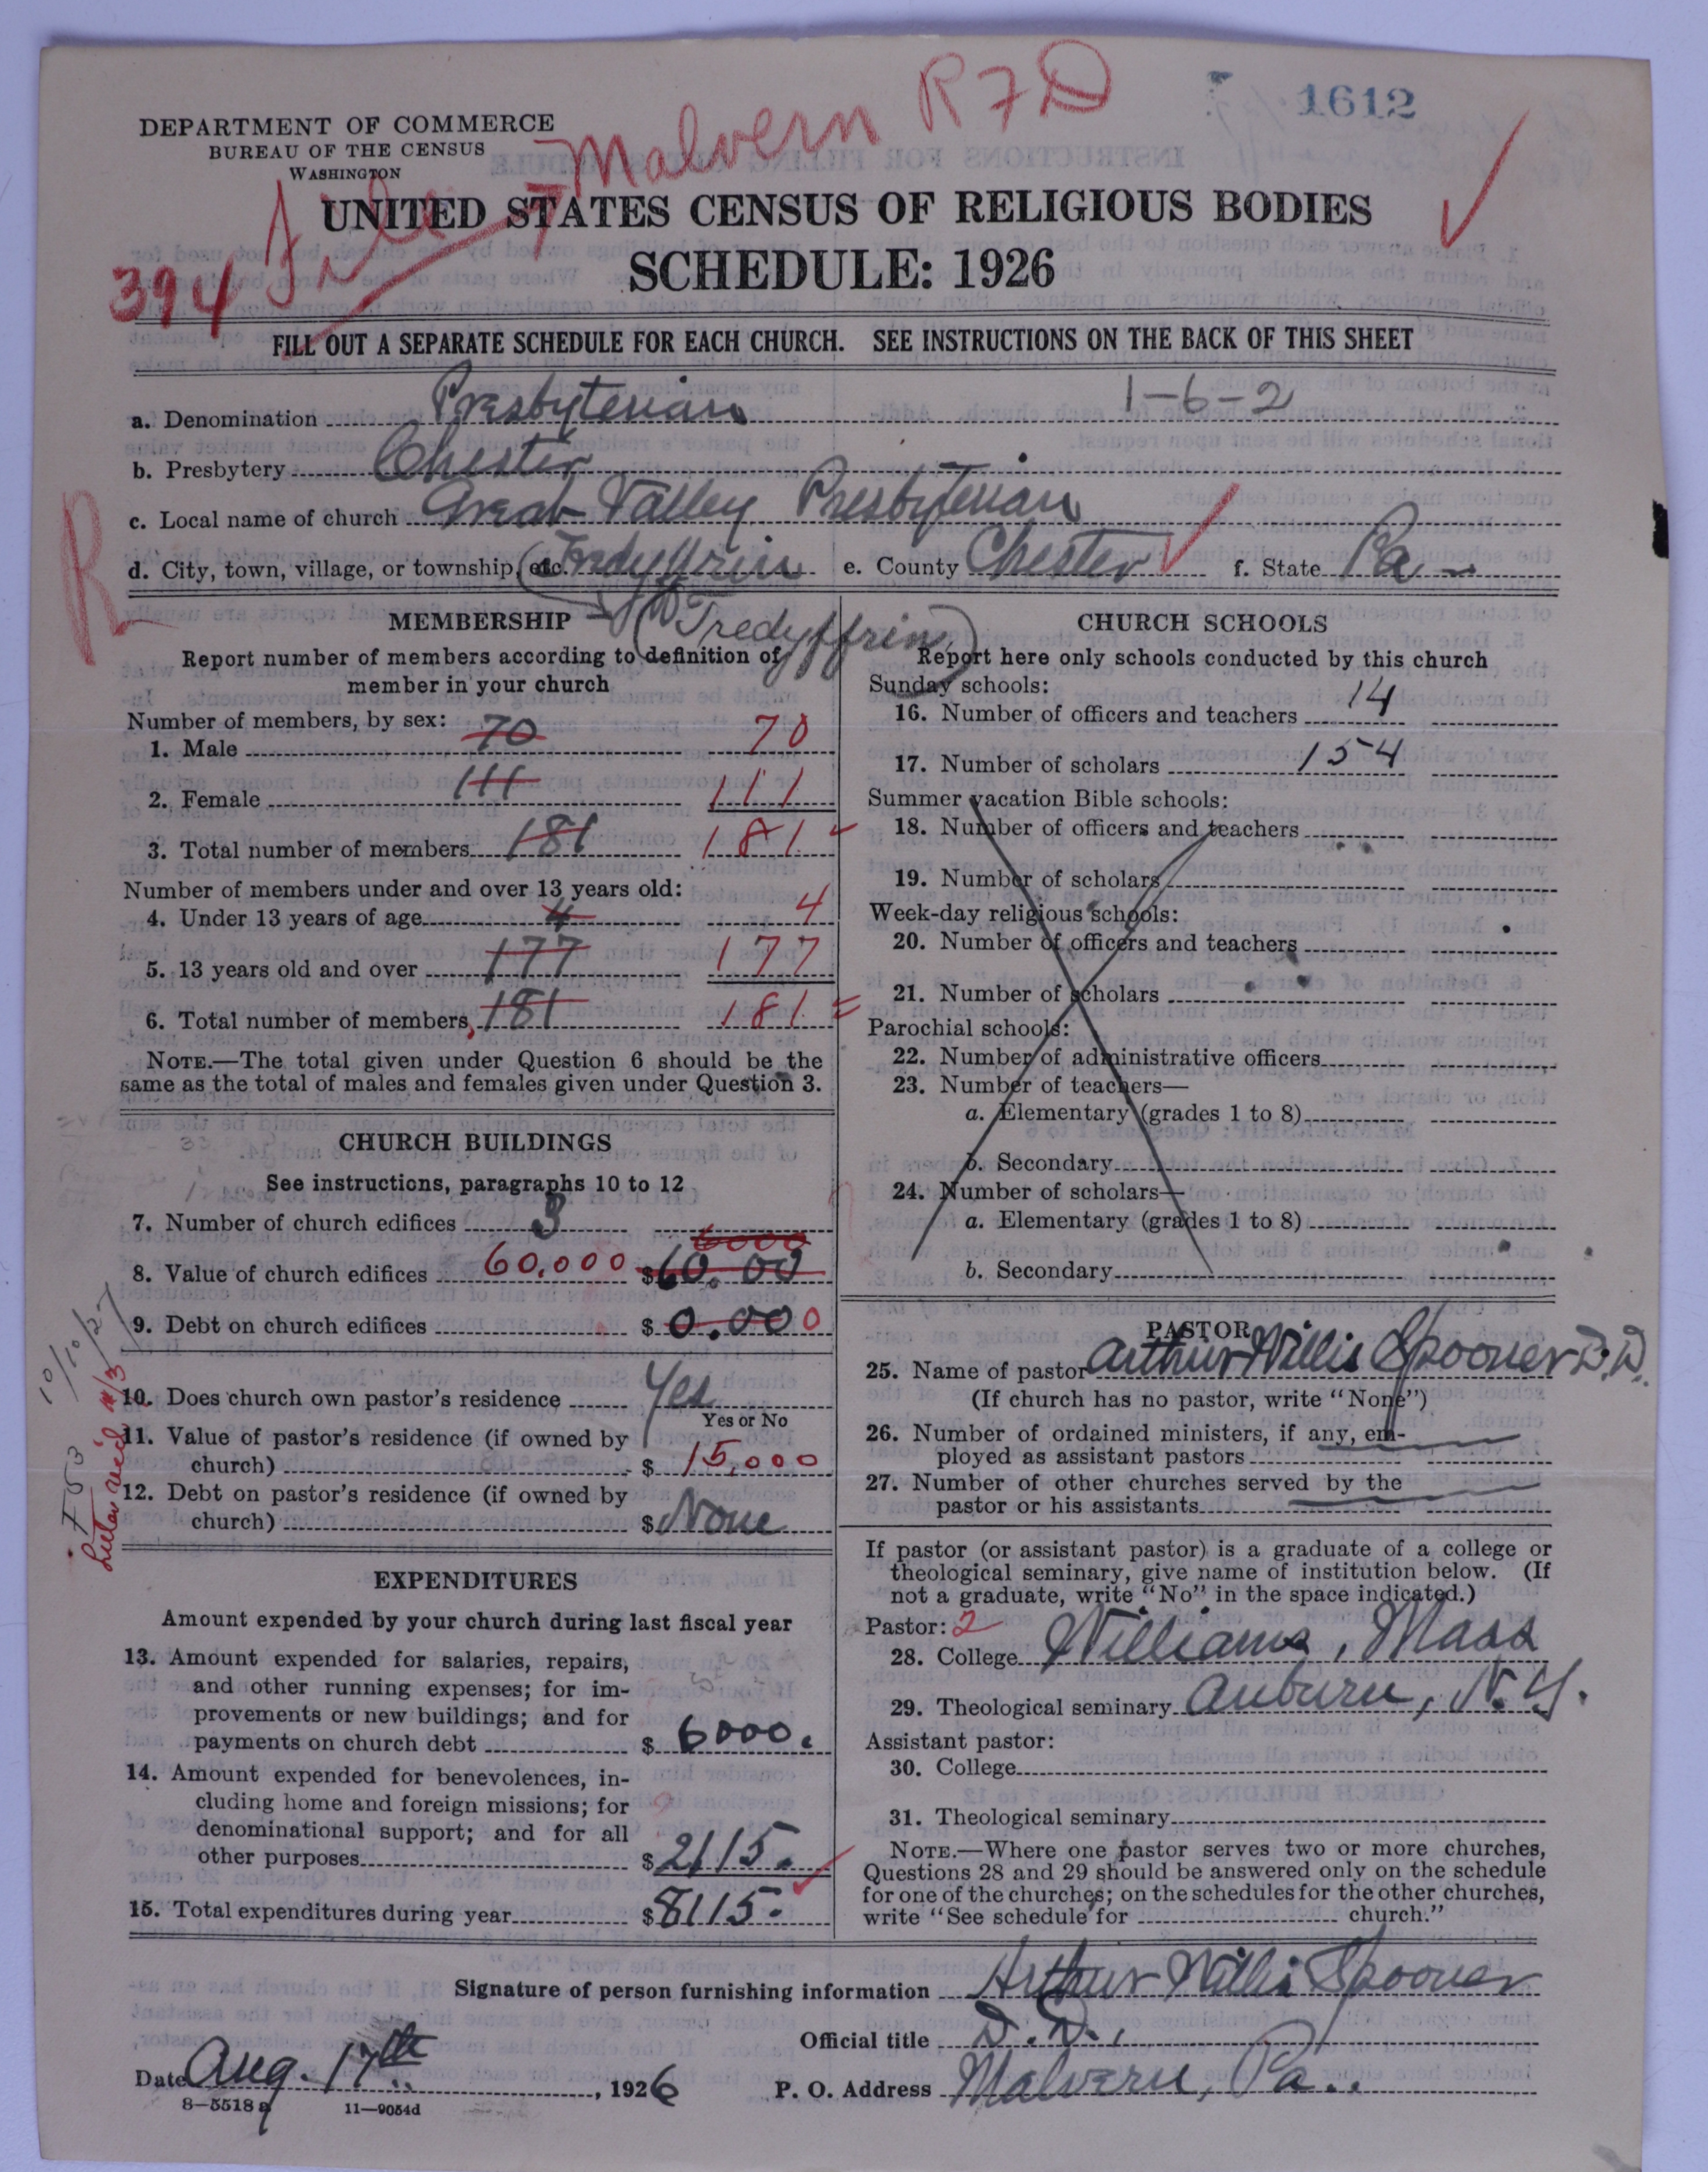 1612
Malvern R 7 D
DEPARTMENT OF COMMERCE
BUREAU OF THE CENSUS
WASHINGTON
UNITED STATES CENSUS OF RELIGIOUS BODIES
SCHEDULE: 1926
394
FILL OUT A SEPARATE SCHEDULE FOR EACH CHURCH. SEE INSTRUCTIONS ON THE BACK OF THIS SHEET
a. Denomination Presbyterian 1-6-2
b. Presbytery Chester
c. Local name of church Great Valley Presbyterian
R
d. City, town, village, or township, etc. Tredyffrin e. County Chester f. State Pa
(Tredyffrin)
MEMBERSHIP
Report number of members according to definition of
member in your church
Number of members, by sex:
1. Male 70 70
2. Female 111 111
3. Total number of members 181 181
Number of members under and over 13 years old:
4. Under 13 years of age 4 4
5. 13 years old and over 177 177
6. Total number of members 181 181
NOTE.—The total given under Question 6 should be the
same as the total of males and females given under Question 3.
CHURCH BUILDINGS
See instructions, paragraphs 10 to 12
7. Number of church edifices 3
6000
8. Value of church edifices 60,000 $60.00
9. Debt on church edifices $0.00 0
10/10/27
10. Does church own pastor's residence Yes
Yes or No
11. Value of pastor's residence (if owned by
church) $ 15,000
12. Debt on pastor's residence (if owned by
church) $ None
EXPENDITURES
Amount expended by your church during last fiscal year
13. Amount expended for salaries, repairs,
and other running expenses; for im-
provements or new buildings; and for
payments on church debt $ 6000.
14. Amount expended for benevolences, in-
cluding home and foreign missions; for
denominational support; and for all
other purposes $ 2115.
15. Total expenditures during year $ 8115.
CHURCH SCHOOLS
Report here only schools conducted by this church
Sunday schools:
16. Number of officers and teachers 14
17. Number of scholars 154
Summer vacation Bible schools:
18. Number of officers and teachers
19. Number of scholars
Week-day religious schools:
20. Number of officers and teachers
21. Number of scholars
Parochial schools:
22. Number of administrative officers
23. Number of teachers—
a. Elementary (grades 1 to 8)
b. Secondary
24. Number of scholars—
a. Elementary (grades 1 to 8)
b. Secondary
PASTOR
25. Name of pastor Arthur Willis Spooner D.D.
(If church has no pastor, write "None")
26. Number of ordained ministers, if any, em-
ployed as assistant pastors
27. Number of other churches served by the
pastor or his assistants
If pastor (or assistant pastor) is a graduate of a college or
theological seminary, give name of institution below. (If
not a graduate, write "No" in the space indicated.)
Pastor: 2
28. College Williams, Mass
29. Theological seminary Auburn, N.Y.
Assistant pastor:
30. College
31. Theological seminary
NOTE.—Where one pastor serves two or more churches,
Questions 28 and 29 should be answered only on the schedule
for one of the churches; on the schedules for the other churches,
write "See schedule for church."
Signature of person furnishing information Arthur Willis Spooner
Official title D.D.,
Date Aug. 17th, 1926 P. O. Address Malvern, Pa.
8—5518 a 11—9054d